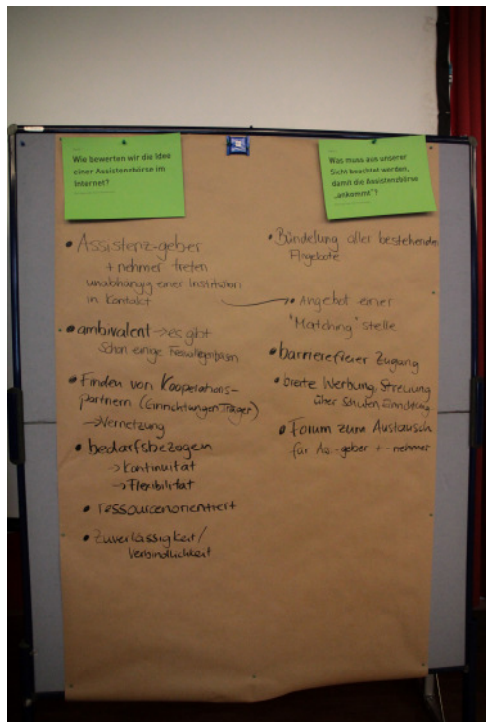 Wie bewerten wir die Idee
einer Assistenzbörse im
Internet?
Was muss aus unserer
Sicht beachtet werden,
damit die Assistenzbörse
„ankommt"?
• Assistenz-geber
+ nehmer treten
unabhängig einer Institution
in Kontakt
• ambivalent → es gibt
schon einige
• Finden von Kooperations-
partnern (Einrichtungen, Träger)
→ Vernetzung
• bedarfsbezogen
→ Kontinuität
→ Flexibilität
• ressourcenorientiert
• Zuverlässigkeit/
Verbindlichkeit
• Bündelung aller bestehenden
Angebote
• Angebot einer
"Matching"stelle
• barrierefreier Zugang
• breite Werbung, Streuung
über Schulen, Einrichtung
• Forum zum Austausch
für As.-geber + -nehmer